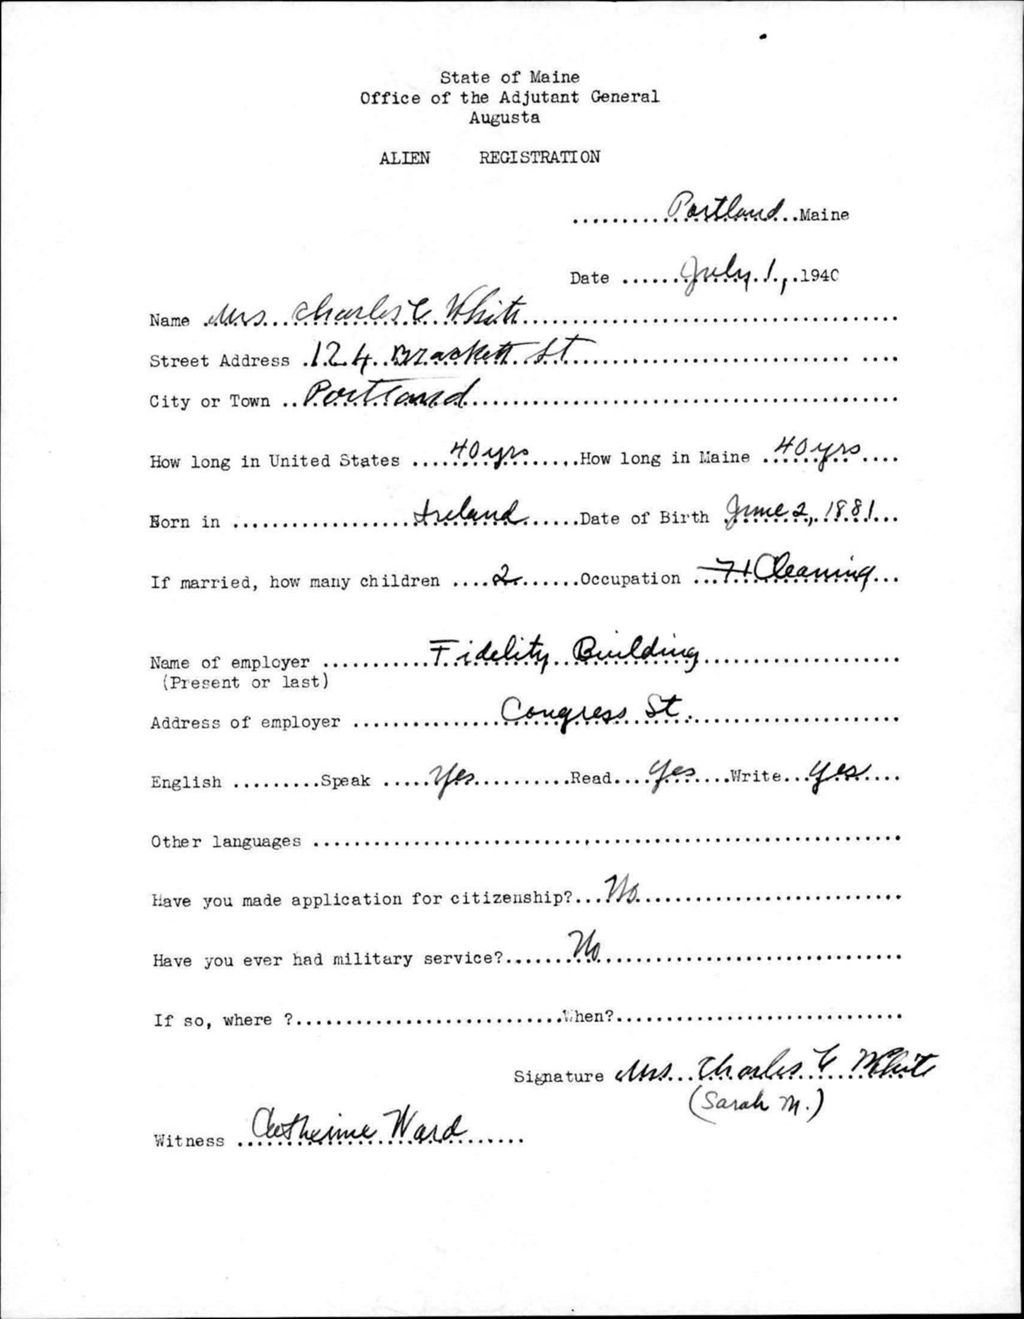 State of Maine
Office of the Adjutant General
Augusta
ALIEN REGISTRATION
..........Portland..Maine
Date ......July.1,.1940
Name .Mrs...Charles C. White.............................................
Street Address .124..Brackett.St............................... ....
City or Town ..Portland..................................................
How long in United States ....40 yrs.......How long in Maine .40 yrs....
Born in ..................Ireland......Date of Birth .June 2, 1881...
If married, how many children ....2.......Occupation ...Cleaning...
Name of employer ...........Fidelity..Building.......................
(Present or last)
Address of employer ...............Congress St.........................
English .........Speak .....Yes...........Read....Yes....Write...Yes....
Other languages ...............................................................
Have you made application for citizenship?...No..........................
Have you ever had military service?.......No..............................
If so, where ?...........................When?.............................
Signature Mrs...Charles C. White
(Sarah M.)
Witness ..Catherine Ward.......